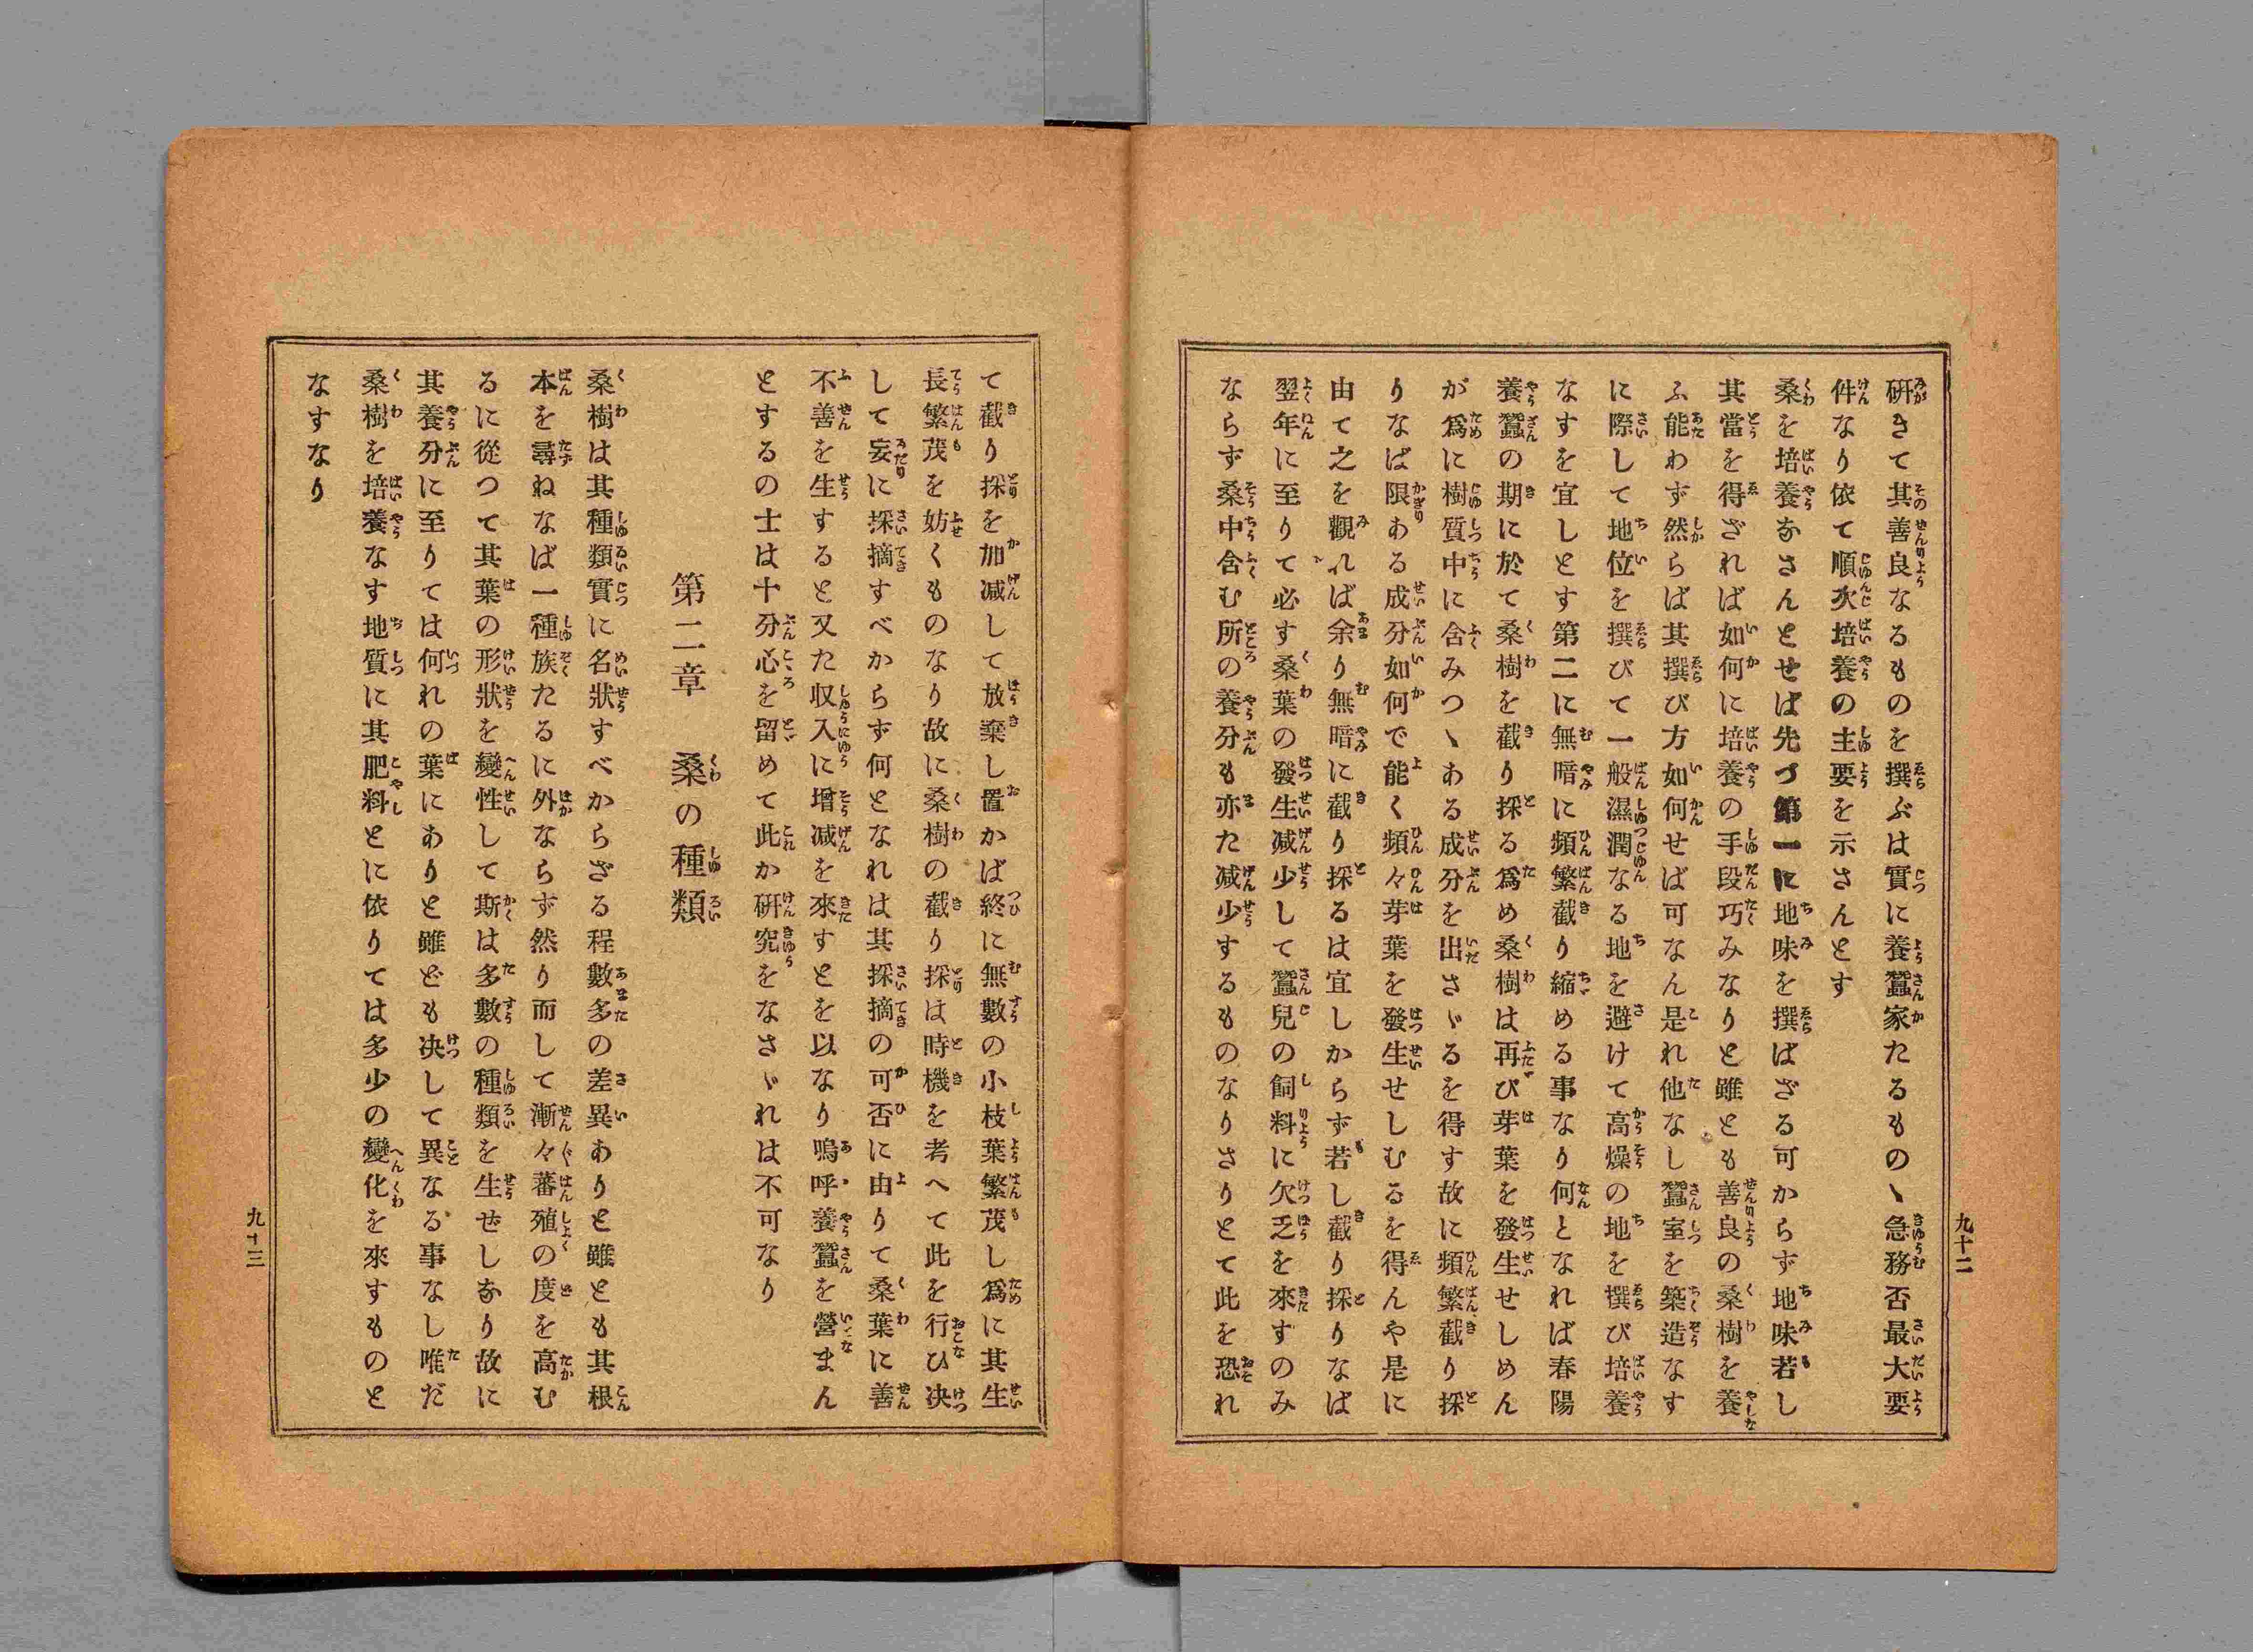 研きて其善良なるものを撰ぶは實に養蠶家たるものゝ急務否最大要
件なり依て順次培養の主要を示さんとす
桑を培養なさんとせば先づ第一に地味を撰ばざる可からず地味若し
其當を得ざれば如何に培養の手段巧みなりと雖とも善良の桑樹を養
ふ能わず然らば其撰び方如何せば可なん是れ他なし蠶室を築造なす
に際して地位を撰びて一般濕潤なる地を避けて高燥の地を撰び培養
なすを宜しとす第二に無暗に頻繁截り縮める事なり何となれば春陽
養蠶の期に於て桑樹を截り採る爲め桑樹は再び芽葉を發生せしめん
が爲に樹質中に含みつゝある成分を出さゞるを得す故に頻繁截り採
りなば限ある成分如何で能く頻々芽葉を發生せしむるを得んや是に
由て之を觀れば余り無暗に截り採るは宜しからず若し截り採りなば
翌年に至りて必す桑葉の發生減少して蠶兒の飼料に欠乏を來すのみ
ならず桑中含む所の養分も亦た減少するものなりさりとて此を恐れ
九十二
て截り採を加减して放棄し置かば終に無數の小枝葉繁茂し爲に其生
長繁茂を妨くものなり故に桑樹の截り採は時機を考へて此を行ひ决
して妄に採摘すべからず何となれは其採摘の可否に由りて桑葉に善
不善を生すると又た収入に增減を來すとを以なり嗚呼養蠶を營まん
とするの士は十分心を留めて此か研究をなさゞれは不可なり
第二章　桑の種類
桑樹は其種類實に名狀すべからざる程數多の差異ありと雖とも其根
本を尋ねなば一種族たるに外ならず然り而して漸々蕃殖の度を高む
るに從つて其葉の形狀を變性して斯くは多數の種類を生ぜしなり故に
其養分に至りては何れの葉にありと雖ども决して異なる事なし唯だ
桑樹を培養なす地質に其肥料とに依りては多少の變化を來すものと
なすなり
九十三